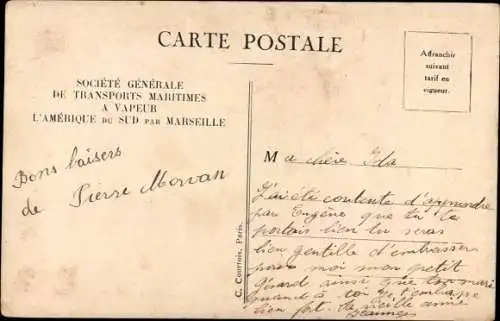 CARTE POSTALE
Affranchir
suivant
tarif en
vigueur.
SOCIÉTÉ GÉNÉRALE
DE TRANSPORTS MARITIMES
A VAPEUR
L'AMÉRIQUE DU SUD PAR MARSEILLE
Bons baisers
de Pierre Morvan
C. Courtois, Paris.
Ma chère Ida
J'ai été contente d'apprendre
par Eugène que tu te
portais bien tu seras
bien gentille d'embrasser
pour moi mon petit
Gérard ainsi que ton mari
quand à toi je t'embrasse
bien fort. Ta vieille amie